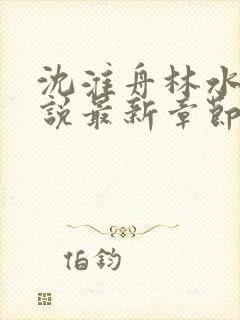 沈淮舟林水
說最新章節
伯鈞